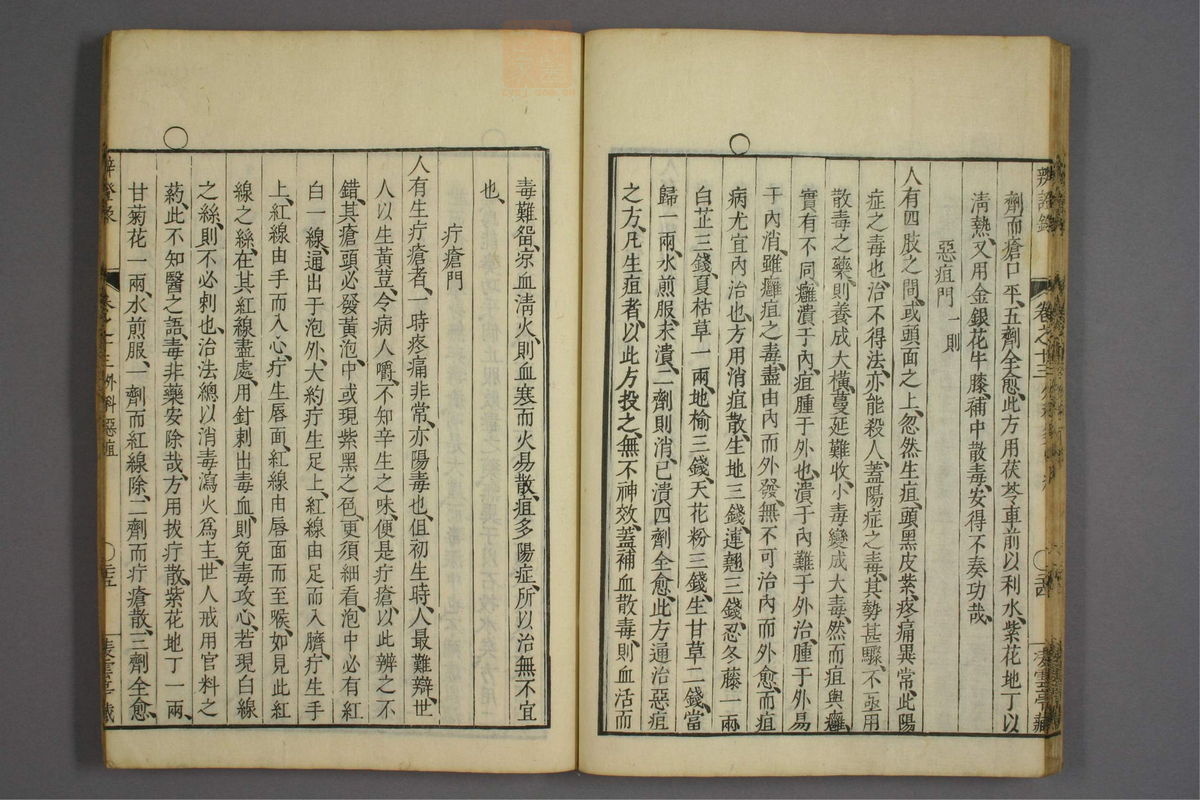 辨證錄 卷之十三
劑而瘡口平、五劑全愈、此方用茯苓車前以利水、紫花地丁以
淸熱、又用金銀花牛膝、補中散毒、安得不奏功哉、
惡疽門 一則
人有四肢之間、或頭面之上、忽然生疽、頭黑皮紫、疼痛異常、此陽
症之毒也、治不得法、亦能殺人、蓋陽症之毒、其勢甚驟、不亟用
散毒之藥、則養成大橫、蔓延難收、小毒變成大毒、然而疽與癰、
實有不同、癰潰于內、疽腫于外也、潰于內難于外治、腫于外易
于內消、雖癰疽之毒、盡由內而外發、無不可治內而外愈、而疽
病尤宜內治也、方用消疽散、生地三錢、連翹三錢、忍冬藤一兩
白芷三錢、夏枯草一兩、地榆三錢、天花粉三錢、生甘草二錢、當
歸一兩、水煎服、未潰、二劑則消、已潰四劑全愈、此方通治惡疽
之方、凡生疽者、以此方投之、無不神效、蓋補血散毒、則血活而
毒難留、凉血淸火、則血寒而火易散、疽多陽症、所以治無不宜
也、
疔瘡門
人有生疔瘡者、一時疼痛非常、亦陽毒也、但初生時、人最難辯、世
人以生黃荳、令病人嚼、不知辛生之味、便是疔瘡、以此辨之不
錯、其瘡頭必發黃泡、中或現紫黑之色、更須細看、泡中必有紅
白一線、通出于泡外、大約疔生足上、紅線由足而入臍、疔生手
上、紅線由手而入心、疔生唇面、紅線由唇面而至喉、如見此紅
線之絲、在其紅線盡處、用針刺出毒血、則免毒攻心、若現白線
之絲、則不必刺也、治法總以消毒瀉火爲主、世人戒用官料之
葯、此不知醫之語、毒非藥安除哉、方用拔疔散、紫花地丁一兩、
甘菊花一兩、水煎服、一劑而紅線除、二劑而疔瘡散、三劑全愈、
卷之十三 外科 惡疽